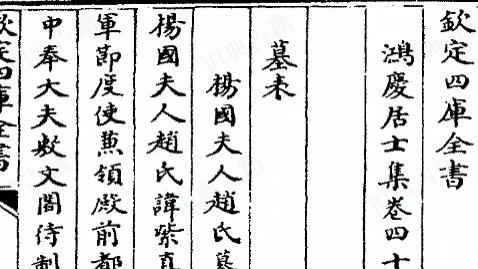 欽定四庫全書
鴻慶居士集卷四十
墓表
楊國夫人趙氏墓
楊國夫人趙氏諱紫真
軍節度使兼領殿前都
中奉大夫敷文閣待制
欽定四庫全書